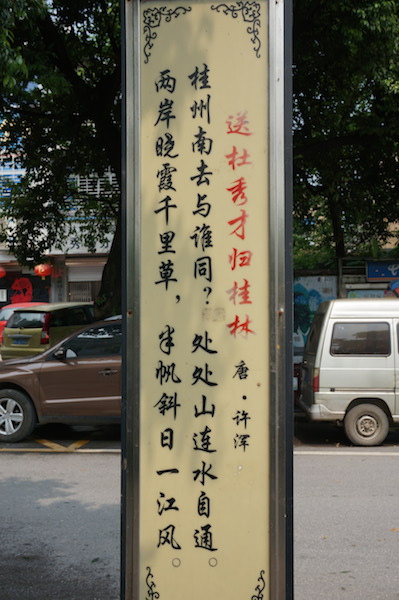 送杜秀才归桂林
唐·许浑
桂州南去与谁同？处处山连水自通
两岸晓霞千里草，半帆斜日一江风